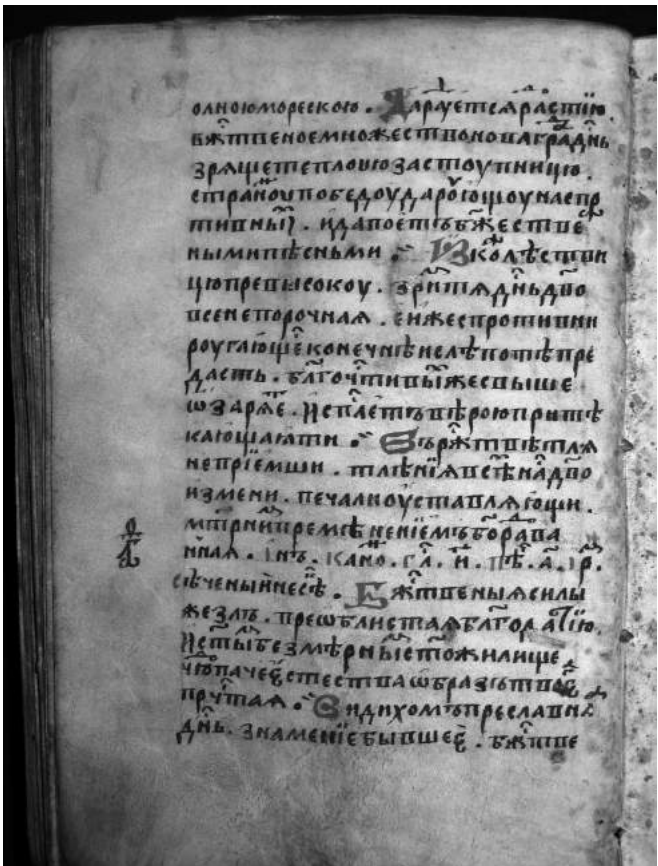 олноюморескою. Даруетсѧрастїю
бж҃твеноемножествоноваградн҃ь
зрѧщетеплоуюзастоупницю.
странꙋпобѣдоударꙋющоунаспр
тивныѧ. идапоетьбж҃естве
нымипѣсньми. Иꙁколѣстви
цюпревысокоу. зритѧдн҃ьдв҃о
всенепорочнаѧ. ениже противни
роугающеконечнѣнелѣпотѣпре
дасть. блг҃очтивыѧжесвыше
ѡзарѧе. Испл҃етьвѣроюпритѣ
кающаѧти. Въ рж҃твѣтлѧ
непрїемши. тлѣнїѧвсѣнадв҃о
измени. печалноуставлѧющи.
мт҃рнипремѣненїемъбг҃орава
ннаѧ. Інъ. кано. гл҃. и҃. пѣ. а҃. ір.
сѣченыйнесѣ. Бж҃твеныѧсилы
жезлъ. преѡблистаѧблг҃одатїю.
Истыбезмѣрныистожилище
чюпачеестестваѡбразътвои
прч҃таѧ. Видихомъпреславна
дн҃ь. знаменїебывшее. бж҃тве